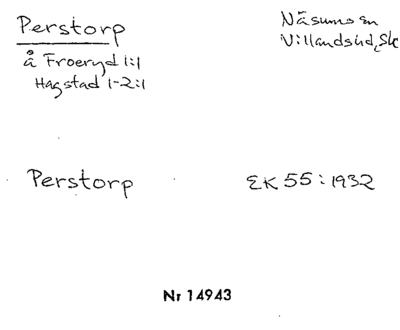 Perstorp
å Froeryd 1:1
Hagstad 1-2:1
Näsums sn
Villands hd, Sk
Perstorp
EK 55:1932
Nr 14943